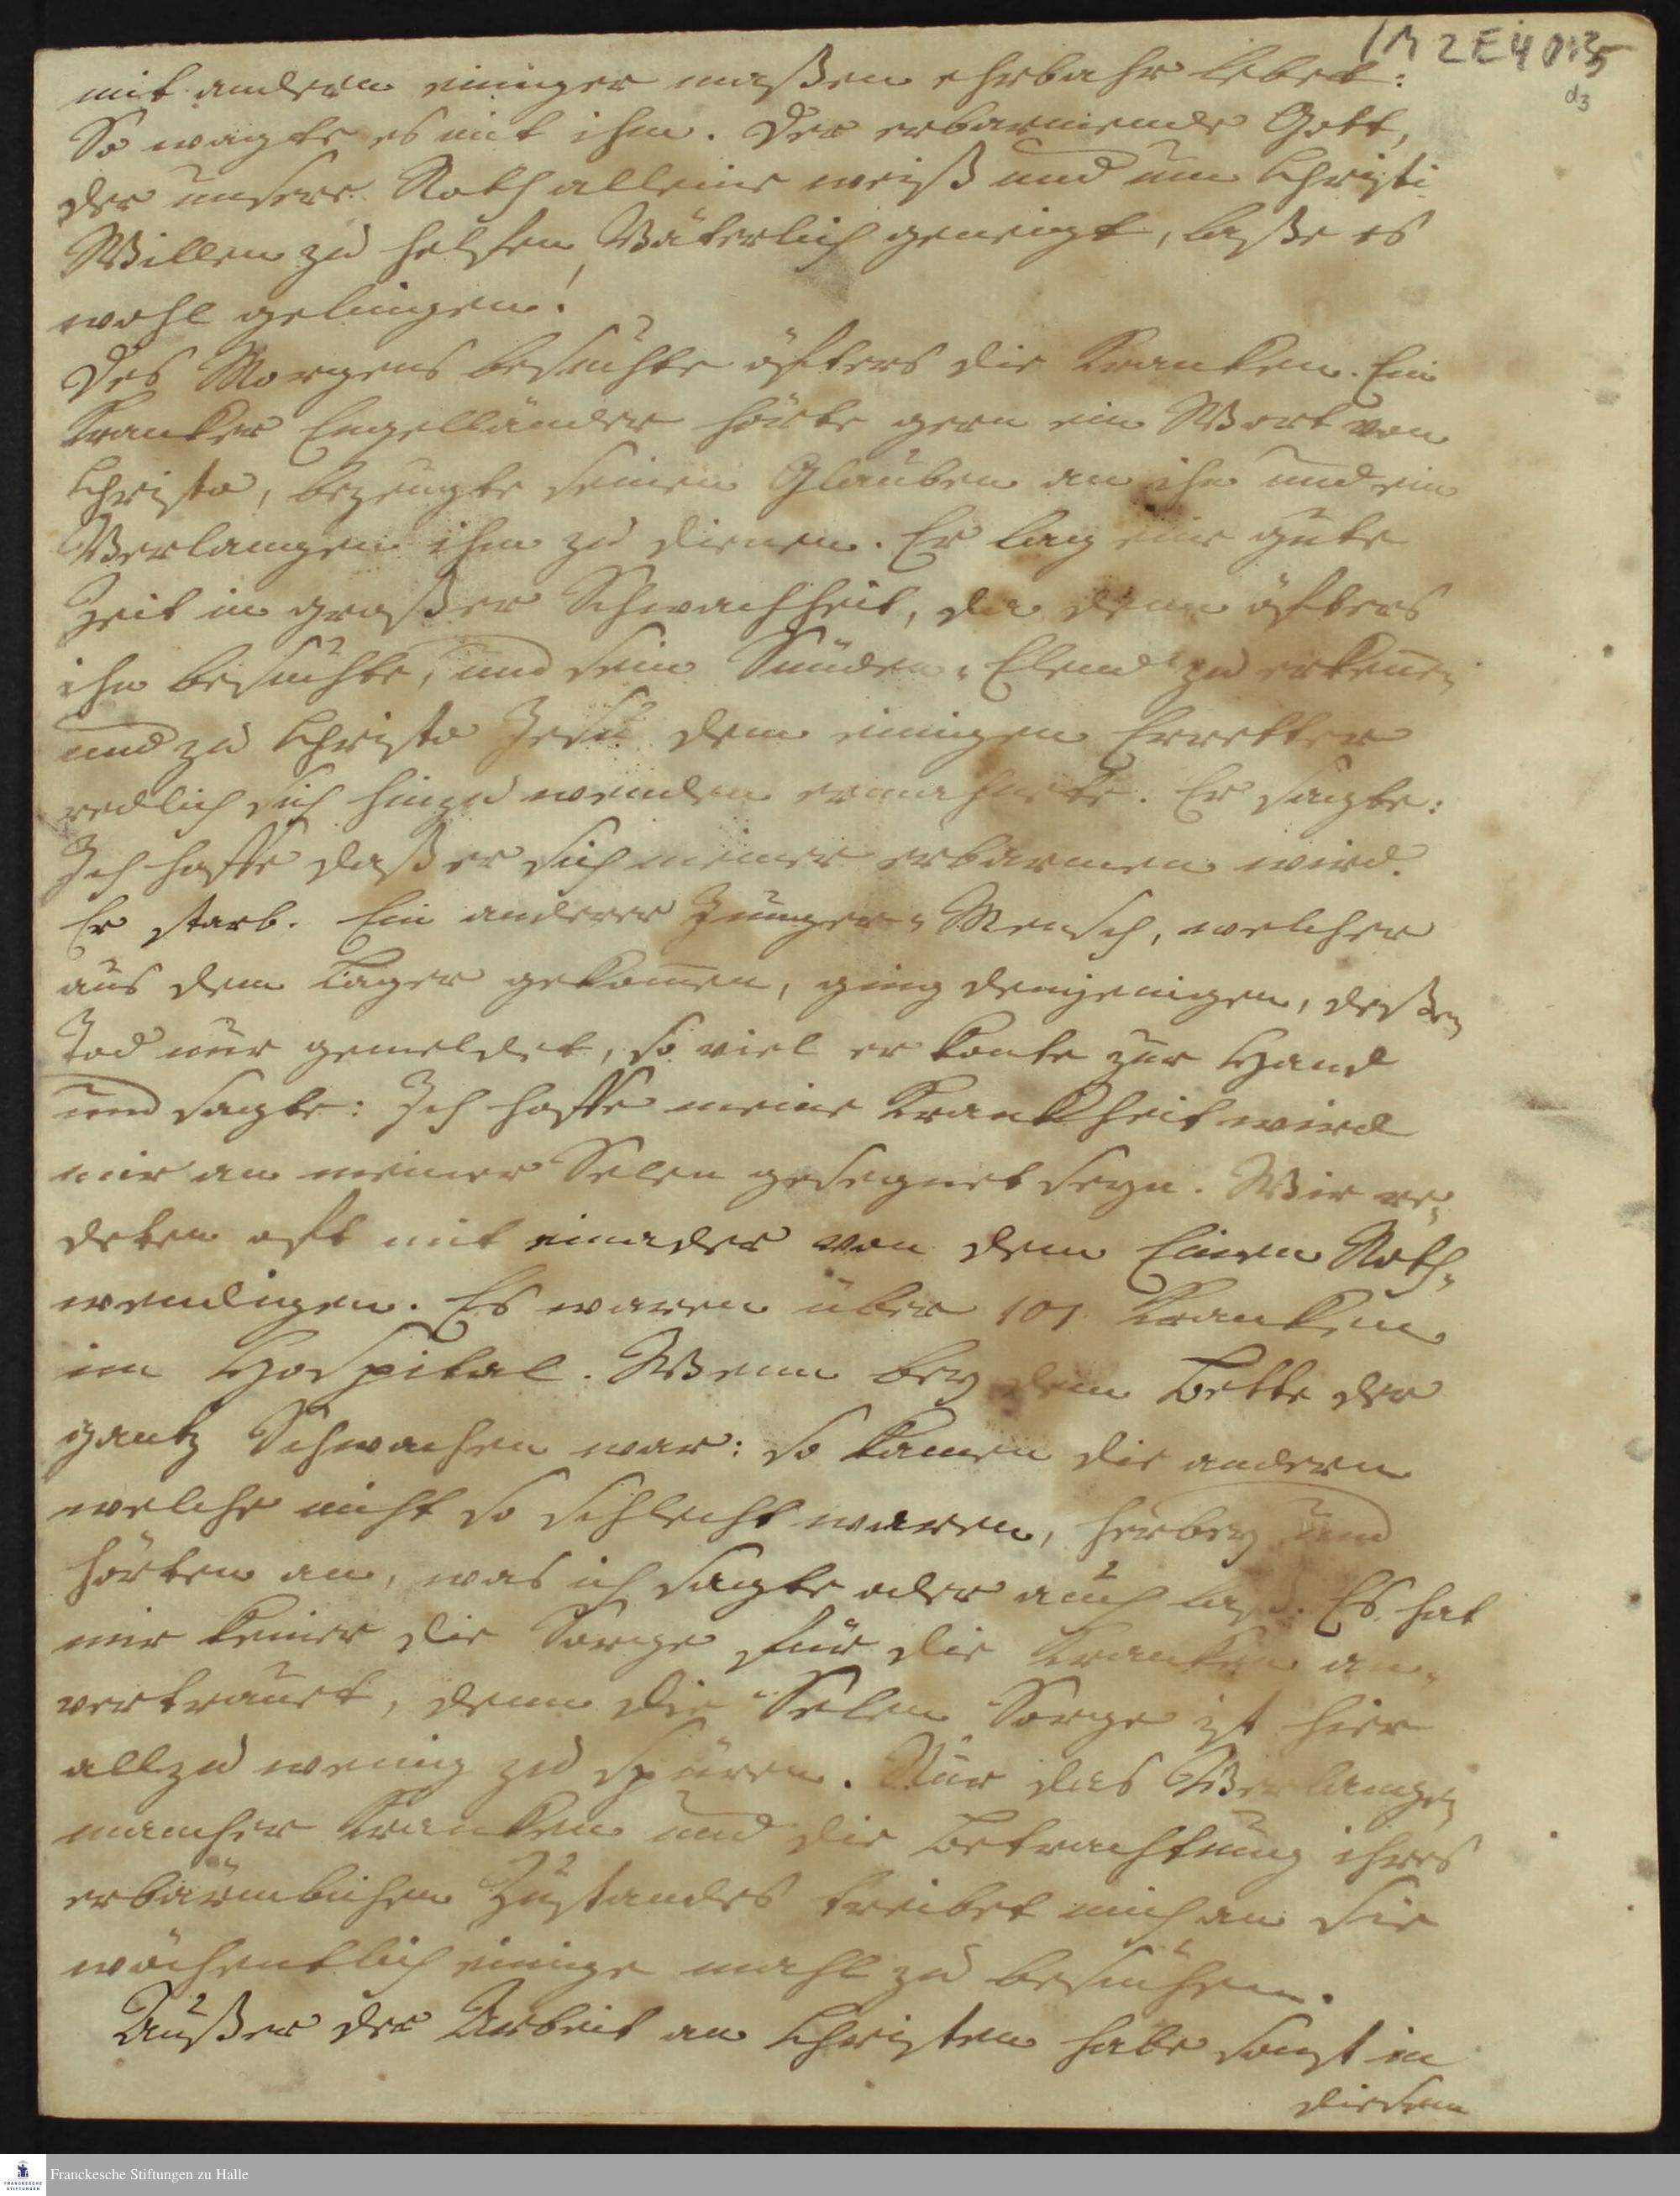 1 M 2 E 4 0:35
d3
mit andern einiger maßen ehrbahr lebet:
So wagte es mit ihm. Der erbarmende Gott,
der unsere Noth alleine weiß und um Christi
Willen zu helfen Väterlich geneigt, laße es
wohl gelingen!
Des Morgens besuchte öfters die Krancken. Ein
Krancker Engelländer hörte gern ein Wort von
Christo, bezeugte seinen Glauben an ihn und ein
Verlangen ihm zu dienen. Er lag eine gute
Zeit in großer Schwachheit, da denn öfters
ihn besuchte, und sein Sünden-Elend zu erkennen
und zu Christo Jesu dem einigen Erretter
redlich sich hinzu wenden ermahnete. Er sagte:
Ich hoffe daß er sich meiner erbarmen wird.
Er starb. Ein anderer Junger-Mensch, welcher
aus dem Lager gekommen, ging demjenigen, deßen
Tod nur gemeldet, so viel er konte zur Hand
und sagte: Ich hoffe meine Kranckheit wird
mir an meiner Selen gesegnet seyn. Wir re-
deten oft mit einader von dem Einen Noth-
wendigen. Es waren über 101 Krancken
im Hospital. Wenn bey dem Bette der
gantz Schwachen war: so kamen die andern
welche nicht so schlecht waren, herbey und
hörten an, was ich sagte oder auch laß. Es hat
mir keiner die Sorge für die Krancken an-
vertrauet, denn die Selen Sorge ist hier
allzu wenig zu spüren. Nur das Verlangen
mancher Krancken und die Betrachtung ihres
erbärmlichen Zustandes treibet mich an sie
wöchentlich einige mahl zu besuchen.
Außer der Arbeit an Christen habe sonst in
diesem
Franckesche Stiftungen zu Halle